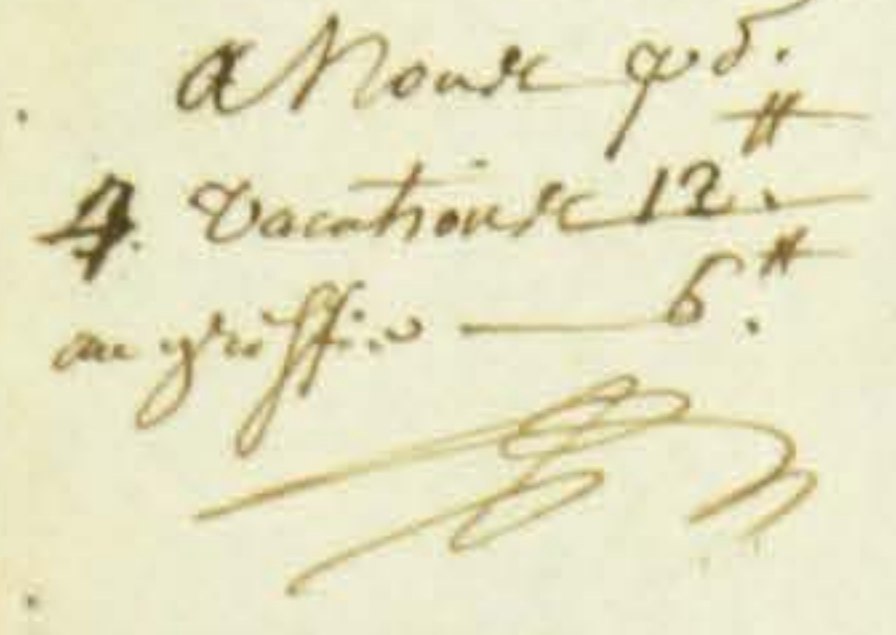 a Nous po[ur]
4 vacations 12.#
au greffier 6.#